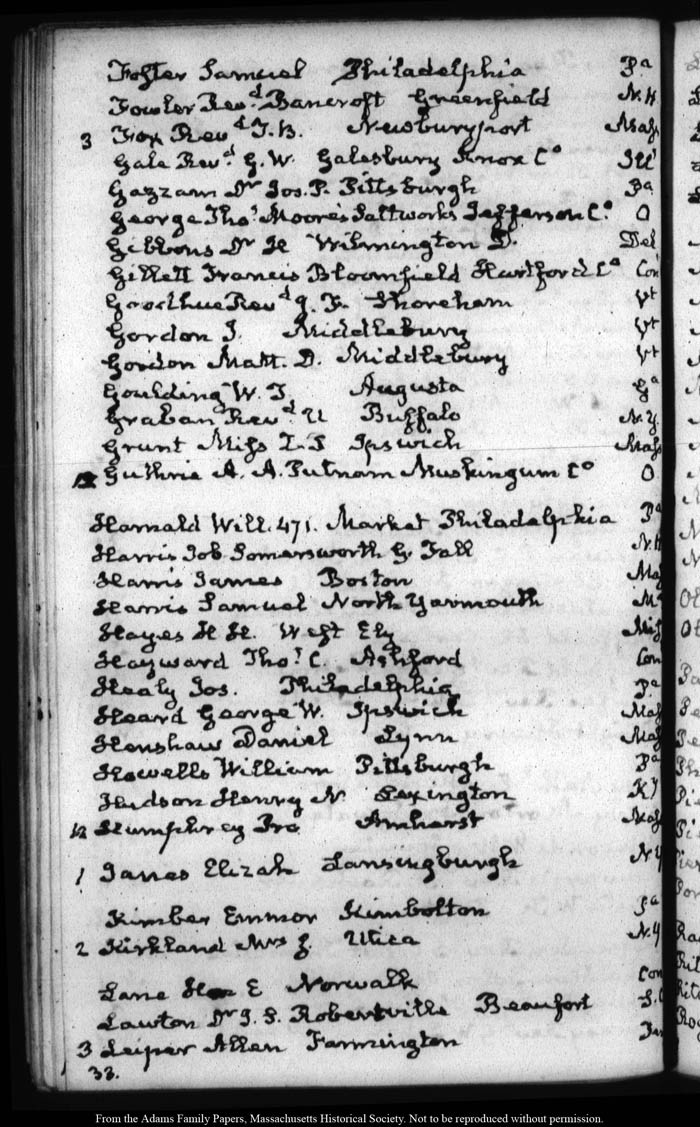 Foster Samuel Philadelphia Pa
Fowler Revd. Bancroft Greenfield N.H
3 Fox Revd T.B. Newburyport Mass
Gale Revd. G.W. Galesburg Knox Co Ill
Gazzam Dr Jos. P. Pittsburgh Pa
George Thos. Moore's Saltworks Jefferson Co. O
Gibbons Dr H Wilmington D. Del
Gillett Francis Bloomfield Hartford Co Con
Goodhue Revd J. F. Shoreham Vt
Gordon J. Middlebury Vt
Gordon Matt. D. Middlebury Vt
Goulding W. T. Augusta Ga
Graban Revd. U Buffalo N.Y.
Grant Miss Z. P Ipswich Mass
Guthrie A. A. Putnam Muskingum Co O
Harnald Will. 471. Market Philadelphia Pa
Harris Job. Somersworth G. Fall N.H
Harris James Boston Mas
Harris Samuel North Yarmouth Me
Hayes H H. West Ely Mis
Hayward Thos. C. Ashford Con
Healy Jos. Philadelphia Pa
Heard George W. Ipswich Mas
Henshaw Daniel Lynn Mas
Howells William Pittsburgh Pa
Hudson Henry N. Lexington Ky
12 Humphrey Pro Amherst Mass
1 Janes Elizah Lansingburgh N.Y
Kimber Emmor Kimbolton Pa
2 Kirkland Mrs J. Utica N.Y
Lane E Norwalk Con
Lawton Dr J. S. Robertville Beaufort S.C
3 Leiper Allen Farmington
33.
From the Adams Family Papers, Massachusetts Historical Society. Not to be reproduced without permission.